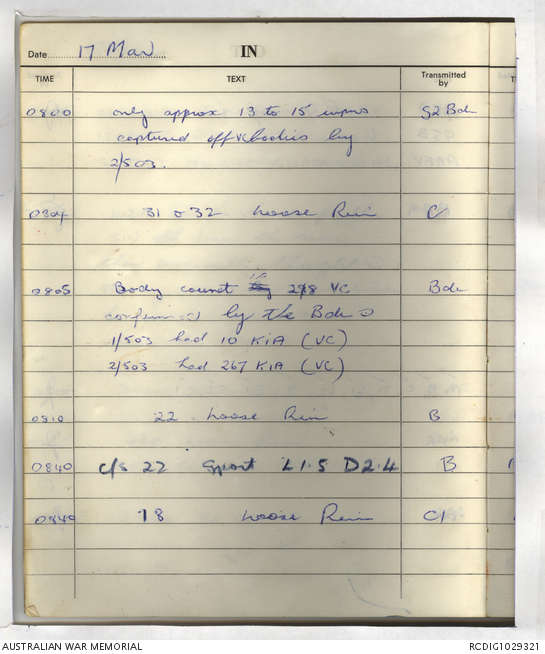 Date 17 Mar IN
TIME TEXT Transmitted by
0800 only approx 13 to 15 wpns S2 Bde
captured off VC bodies by
2/503.
0804 31 & 32 loose Rein C
0805 Body count is 278 VC Bde
confirmed by the Bde
1/503 had 10 KIA (VC)
2/503 had 267 KIA (VC)
0810 22 loose Rein B
0840 c/s 22 Sport L1.5 D2.4 B
0840 18 loose Rein C1
AUSTRALIAN WAR MEMORIAL RCDIG1029321